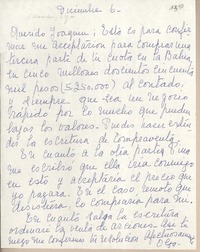 Diciembre 6-
Querido Joaquin: Esto es para confir
mar mi aceptación para comprar una
tercera parte de tu cuota en la Bahia
en cinco millones doscientos cincuenta
mil pesos (5.250.000) al contado.
y siempre que sea un negocio
rapido por lo mucho que pueden
bajar los valores. Puedes hacer exten
der la escritura de compraventa.
En cuanto a la otra parte, Nina
me escribió que ella iria conmigo
en esto y aceptaria el precio que
yo pagara. En el caso, remoto que
desistiera, lo compraria para mi.
En cuanto salga la escritura
ordenaré la venta de acciones. Que
me confirmes tu resolucion